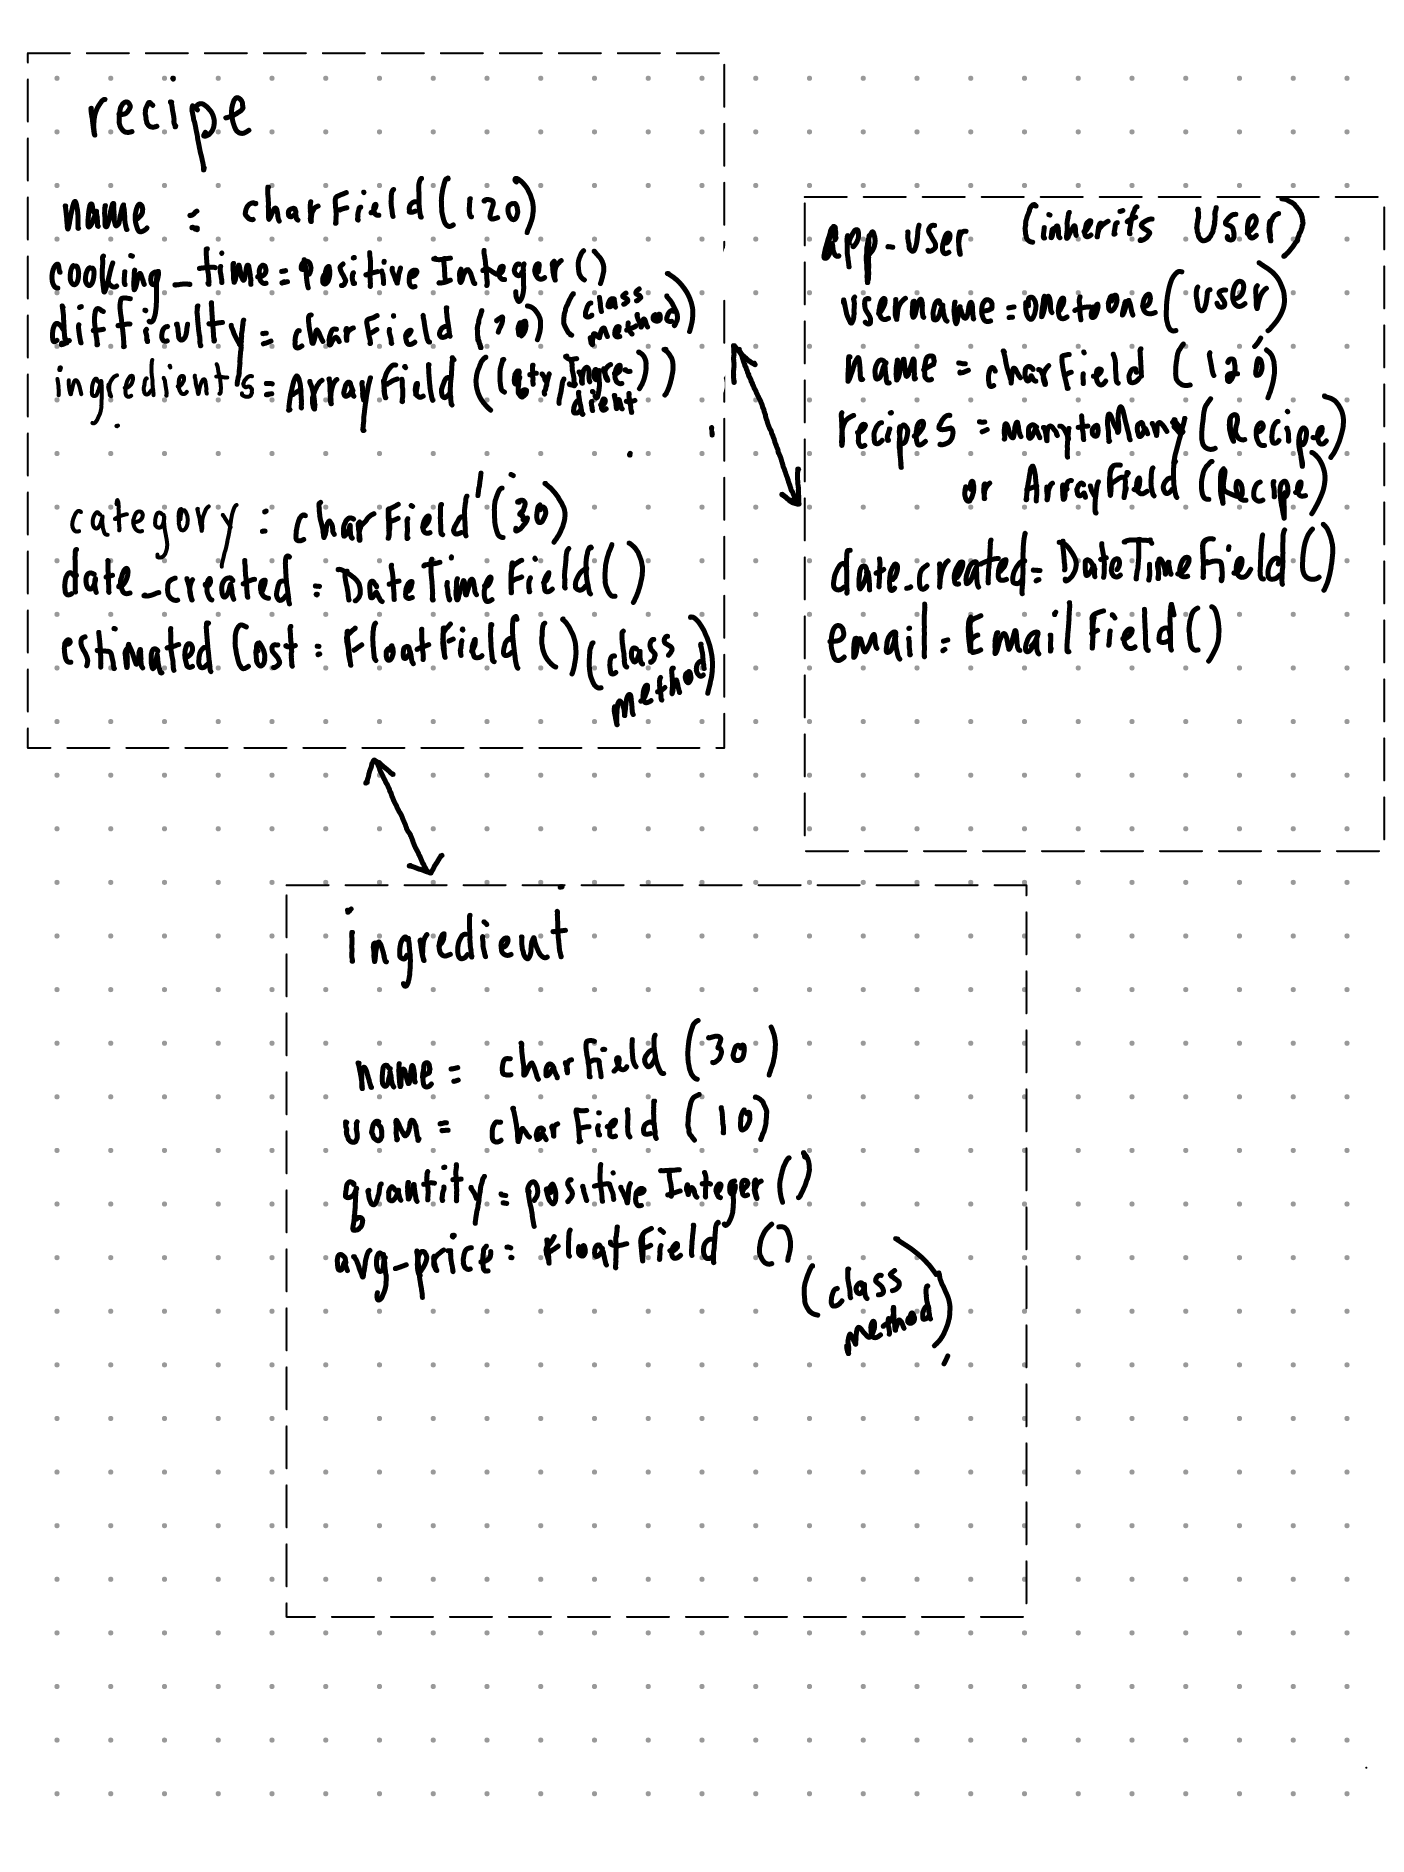 recipe
name = charField(120)
cooking_time = positive Integer()
difficulty = charField (20) (class method)
ingredients = ArrayField ((qty, Ingre-dient))
category = charField (30)
date_created = DateTimeField()
estimated Cost = FloatField () (class method)
app-user (inherits User)
username = onetoone(user)
name = charField (120)
recipes = manytoMany (Recipe)
or ArrayField (Recipe)
date_created = DateTimeField()
email = EmailField()
ingredient
name = charfield (30)
UOM = charField (10)
quantity = positive Integer()
avg-price = FloatField ()
(class method)